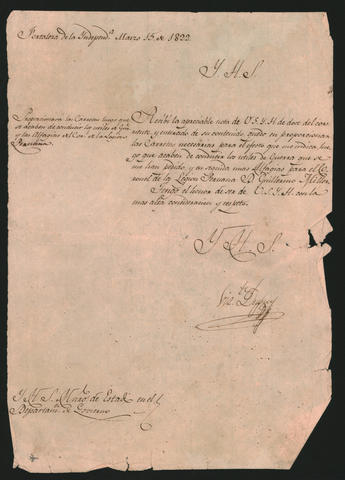 Fortaleza de la Independ.ª Marzo 15 de 1822
Y. H. S.
Proporcionará las Carretas luego que
se acaben de conducir los utiles de Grra
y las Alfagias al Cor.l de la Legion
Peruana.
Recibi la apreciable nota de V.S.Y.H. de doce del cor-
riente, y enterado de su contenido, quedo en proporcionar
las Carretas necesarias para el efecto que me indica, lue-
go que acaben de conducir los utiles de Guerra que se
me han pedido, y en seguida unas Alfagias para el Co-
ronel de la Legion Peruana D. Guillermo Miller.
Tengo el honor de ser de V.S.Y.H. con la
mas alta consideracion y respeto.
Y. H. S.
Y. H. S. Mntro de Estado en el
Departam.to de Govierno